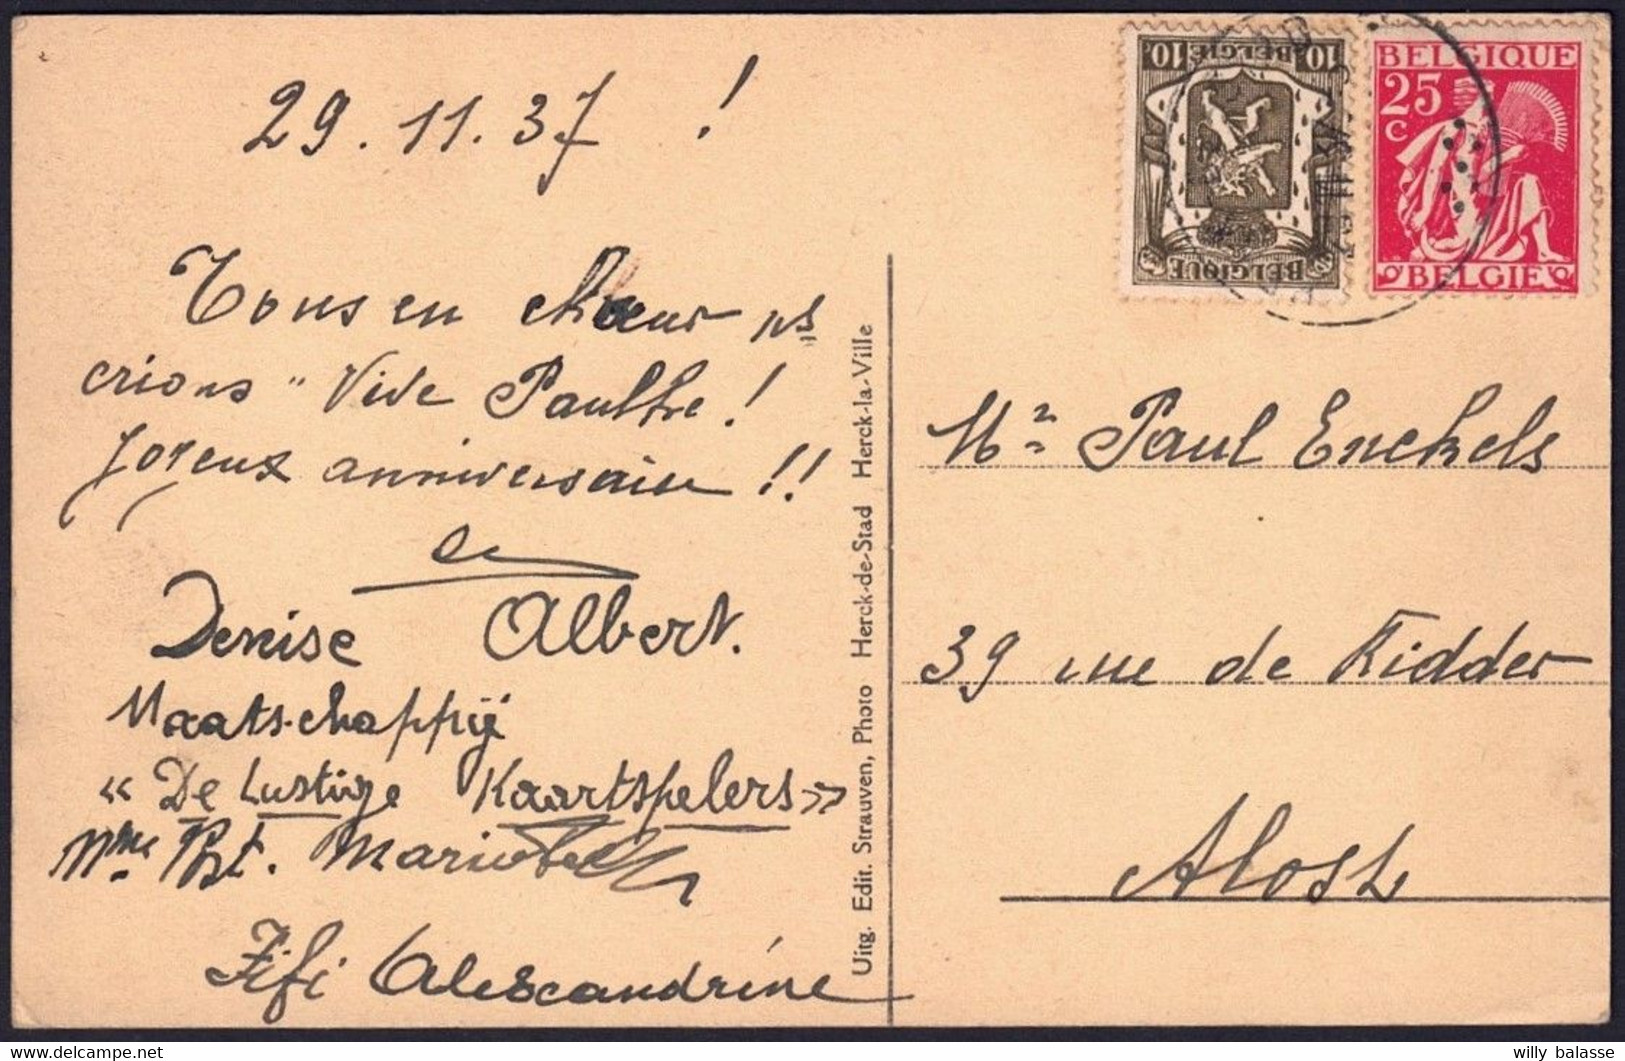 29.11.37 !
Tous en chœur ns
crions " Vive Paulke !
Joyeux anniversaire !!
Denise Albert.
Maatschappij
« De Lustige Kaartspelers »
Mme
Fifi Alexandrine
Uitg. Edit. Strauven, Photo Herck-de-Stad Herck-la-Ville
10 BELGIE 10
BELGIQUE
BELGIQUE
25
C
BELGIE
Mr Paul Enekels
39 rue de Ridder
Alost
willy balasse